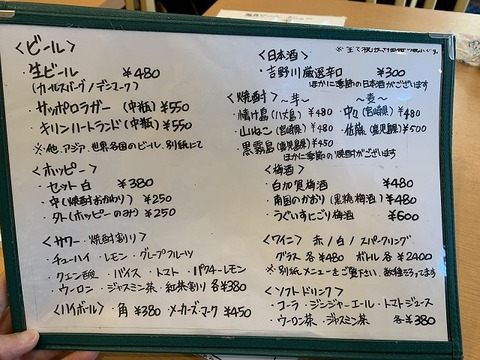 <ビール>
・生ビール ¥480
(カールスバーグ/デンマーク)
・サッポロラガー (中瓶) ¥550
・キリンハートランド (中瓶) ¥550
※他、アジア、世界各国のビール、別紙にて
<ホッピー>
・セット 白 ¥380
・中(焼酎おかわり) ¥250
・外(ホッピーのみ) ¥250
<サワー・焼酎割り>
・チューハイ ・レモン ・グレープフルーツ
・クエン酸 ・バイス ・トマト ・パクチーレモン
・ウーロン ・ジャスミン茶 ・紅茶割り 各¥380
<ハイボール> ・角 ¥380 ・メーカーズマーク ¥450
<日本酒>
・吉野川 厳選辛口 ¥300
ほかに季節の日本酒がございます
<焼酎> ~芋~ ~麦~
・情け島 (八丈島) ¥480 ・中々 (宮崎県) ¥480
・山ねこ (宮崎県) ¥480 ・佐藤 (鹿児島県) ¥500
・黒霧島 (鹿児島県) ¥450
ほかに季節の焼酎がございます
<梅酒>
・白加賀梅酒 ¥480
・南国のかおり (黒糖梅酒) ¥480
・うぐいすにごり梅酒 ¥600
<ワイン> 赤/白/スパークリング
グラス 各¥480 ボトル 各¥2400
※別紙メニューをご覧下さい、数種そろってます
<ソフトドリンク>
・コーラ ・ジンジャーエール ・トマトジュース
・ウーロン茶 ・ジャスミン茶 各¥380